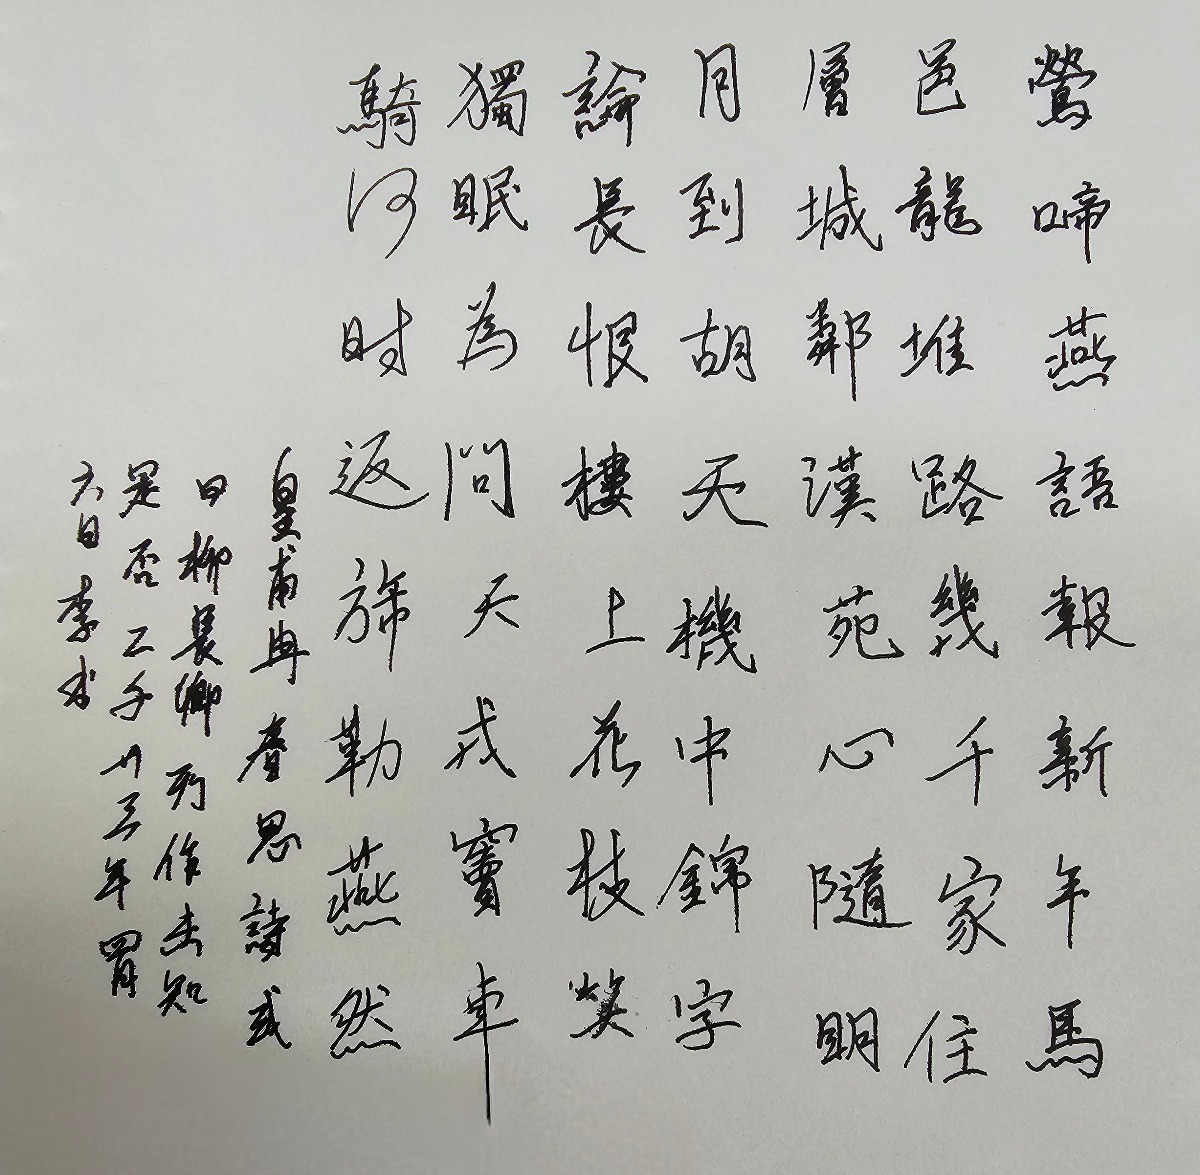 鶯啼燕語報新年馬
邑龍堆路幾千家住
層城鄰漢苑心隨明
月到胡天機中錦字
論長恨樓上花枝笑
獨眠為問天戎竇車
騎何时返旆勒燕然
皇甫冉春思詩或
曰柳長卿所作未知
是否二千廿三年四月
六日李